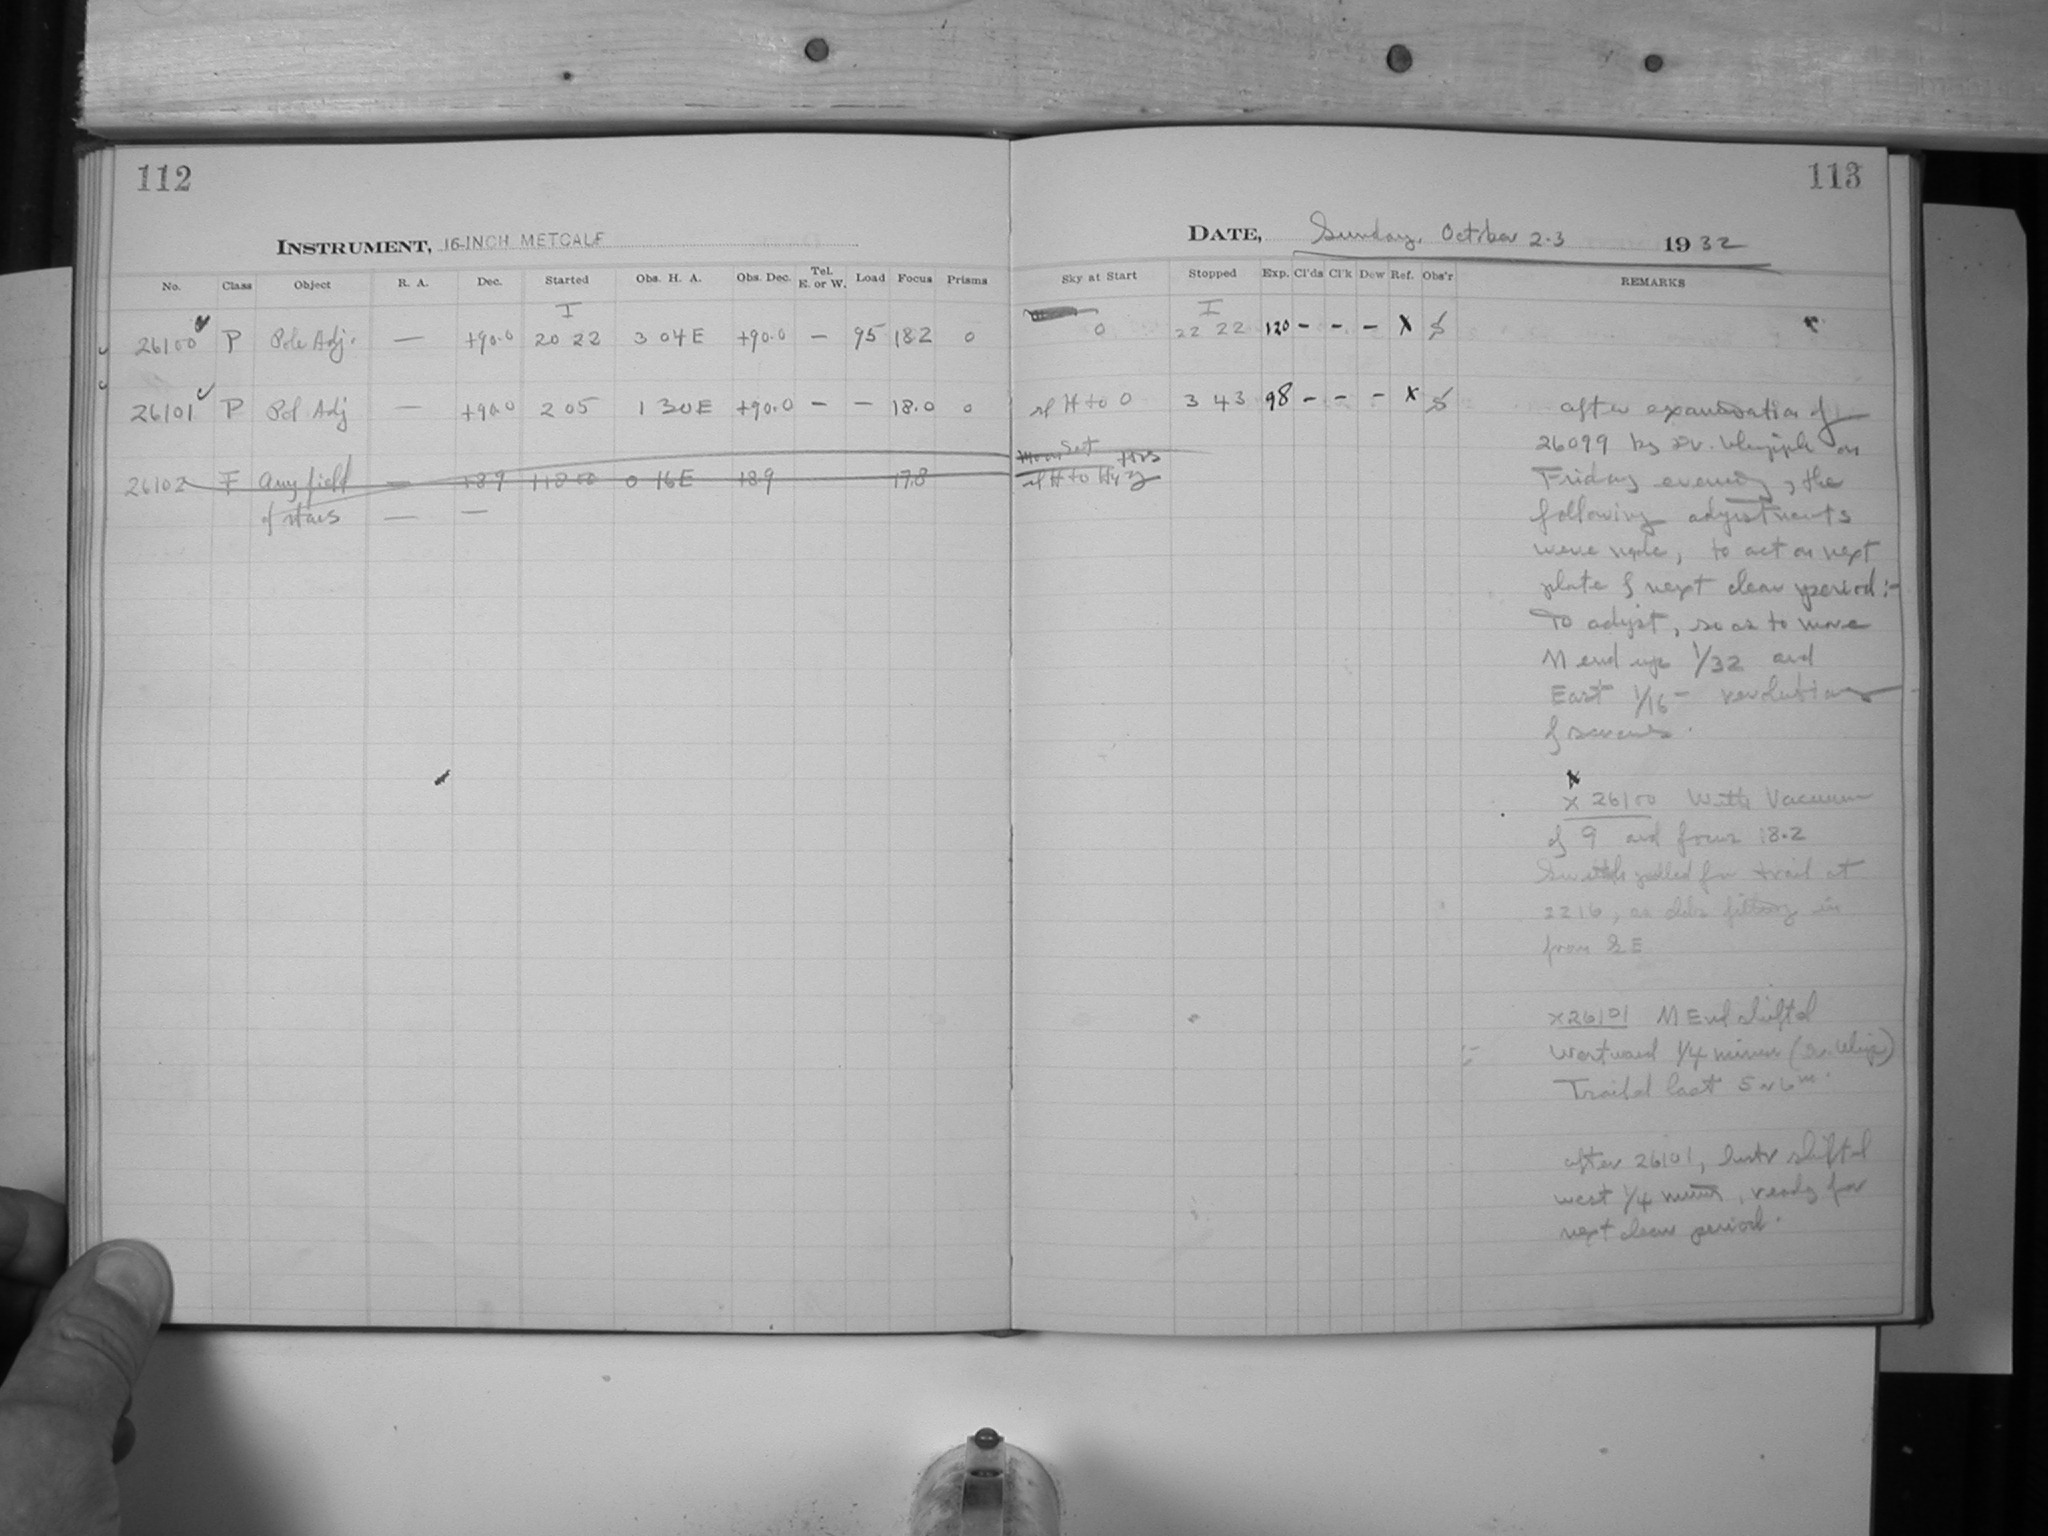 112
113
INSTRUMENT, 16-INCH METCALF
DATE, Sunday, October 2-3 1932
No. Class Object R. A. Dec. Started Obs. H. A. Obs. Dec. Tel. E. or W. Load Focus Prisms
Sky at Start Stopped Exp. Cl'ds Cl'k Dew Ref. Obs'r REMARKS
I I
26100 P Pole Adj. — +90.0 20 22 3 04 E +90.0 — 95 18.2 0
0 22 22 120 - - - X
26101 P Pol Adj — +90.0 2 05 1 30 E +90.0 — — 18.0 0
H to 0 3 43 98 - - - X
after examination of
26099 by Dr. Whipple on
26102 F Any field — 0 16 E +8.9 17.8
of stars — —
Friday evening, the
following adjustments
were made, to act on next
plate of next clear period:-
To adjust, so as to move
N end up 1/32 and
East 1/16 - revolutions
of screws.
X 26100 With Vacuum
of 9 and focus 18.2
Switch pulled for trail at
2216, as clds in
from SE
X26101 N End shifted
Westward 1/4 minus
Trailed last 5 or 6m.
after 26101, shifted
west 1/4, ready for
next clear period.